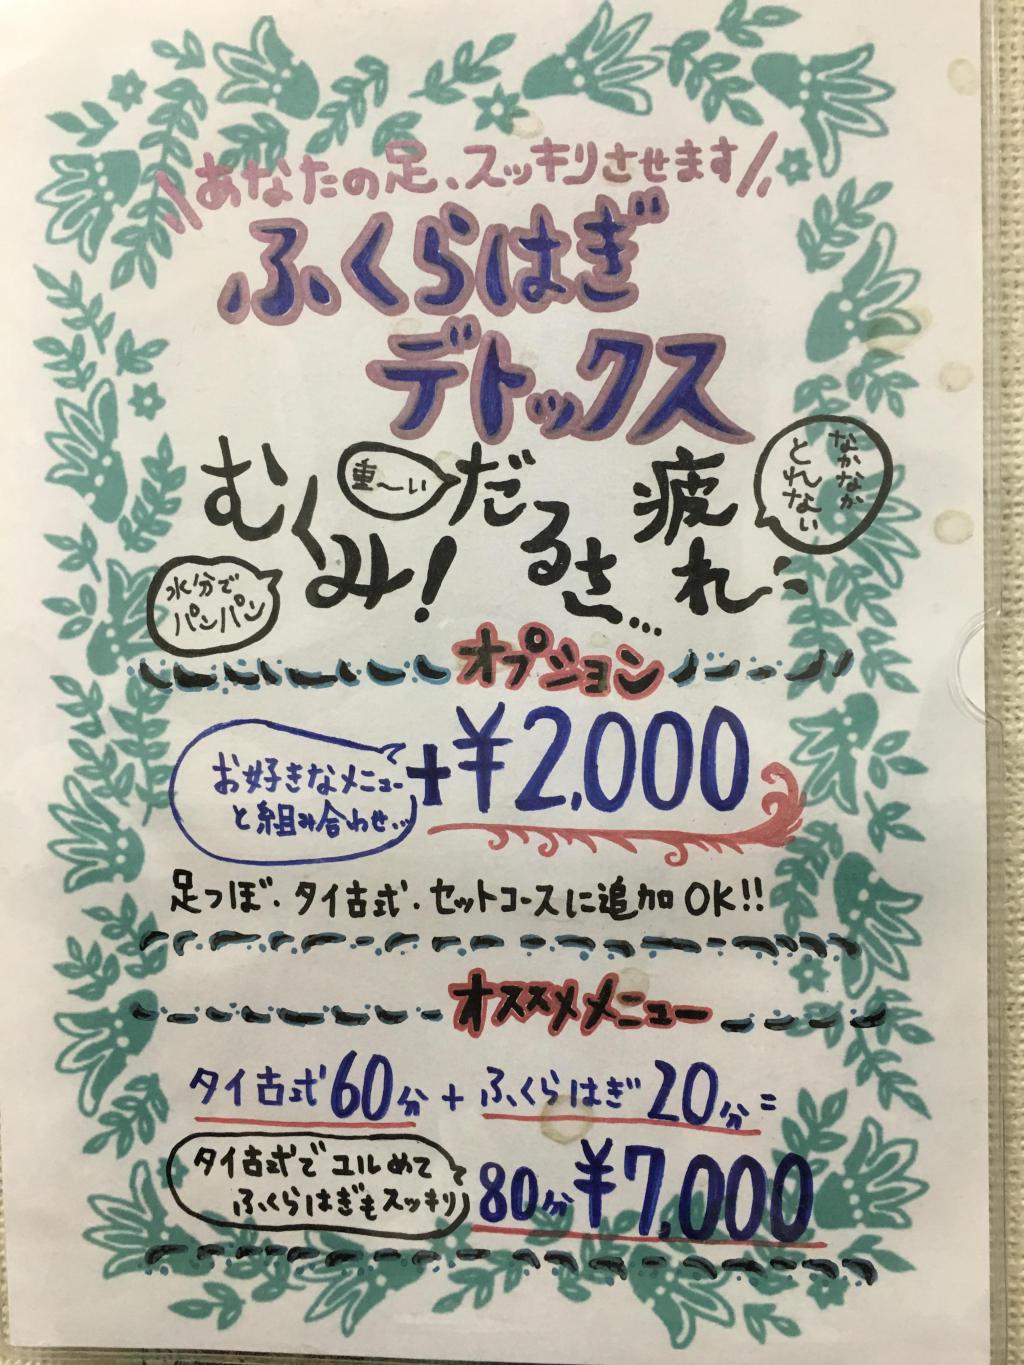 \\あなたの足、スッキリさせます//
ふくらはぎ
デトックス
むくみ!
水分で
パンパン
重〜い
だるさ…
疲れ
なかなか
とれない
オプション
お好きなメニュー
と組み合わせ…
+¥2,000
足つぼ・タイ古式・セットコースに追加OK!!
オススメメニュー
タイ古式60分+ふくらはぎ20分=
タイ古式でユルめて
ふくらはぎもスッキリ
80分¥7,000